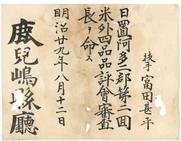 技手 富田甚平
日置阿多二郡第二回
米外四品品評會審査
長ヲ命ス
明治廿九年八月十二日
鹿兒嶋縣廳